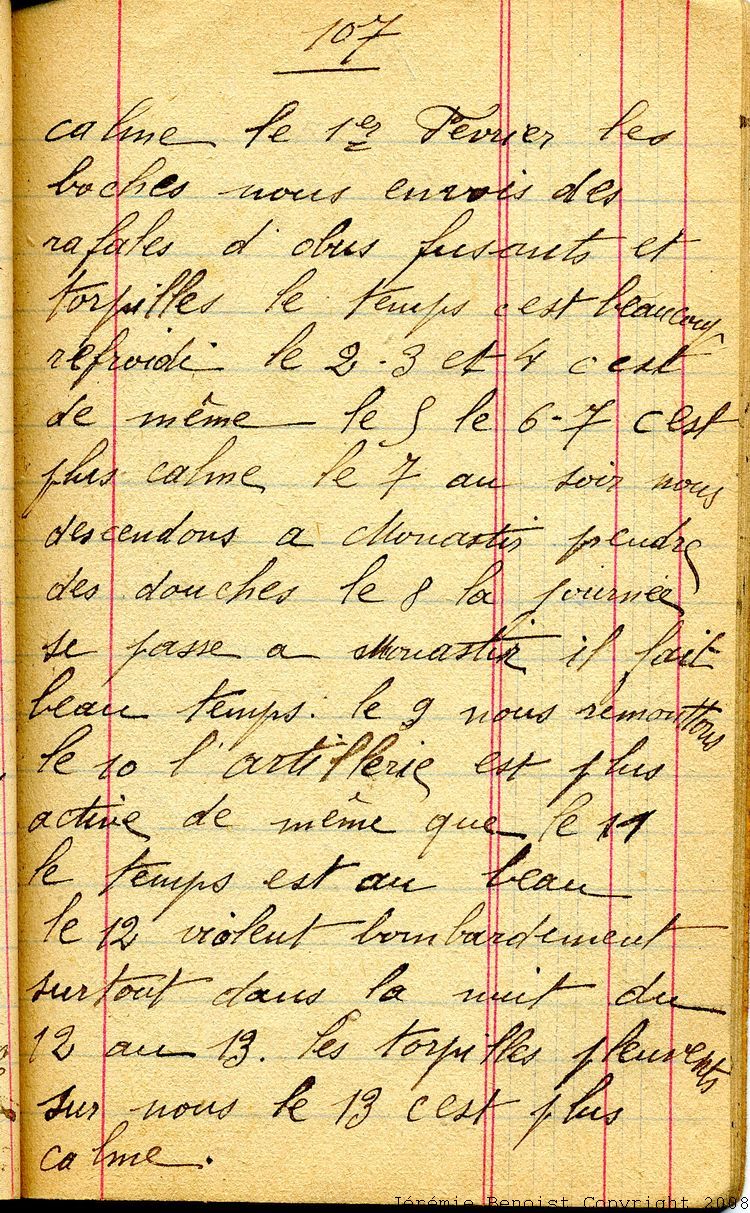 107
calme le 1er Fevrier les
boches nous envois des
rafales d obus fusants et
torpilles le temps c est beaucoup
refroidi le 2-3 et 4 c est
de même le 5 le 6-7 c est
plus calme le 7 au soir nous
descendons a Monastir prendre
des douches le 8 la journée
se passe a Monastir il fait
beau temps. le 9 nous remonttons
le 10 l'artillerie est plus
active de même que le 11
le temps est au beau
le 12 violent bombardement
surtout dans la nuit du
12 au 13. les torpilles pleuvents
sur nous le 13 c est plus
calme.
Jérémie Benoist Copyright 2008